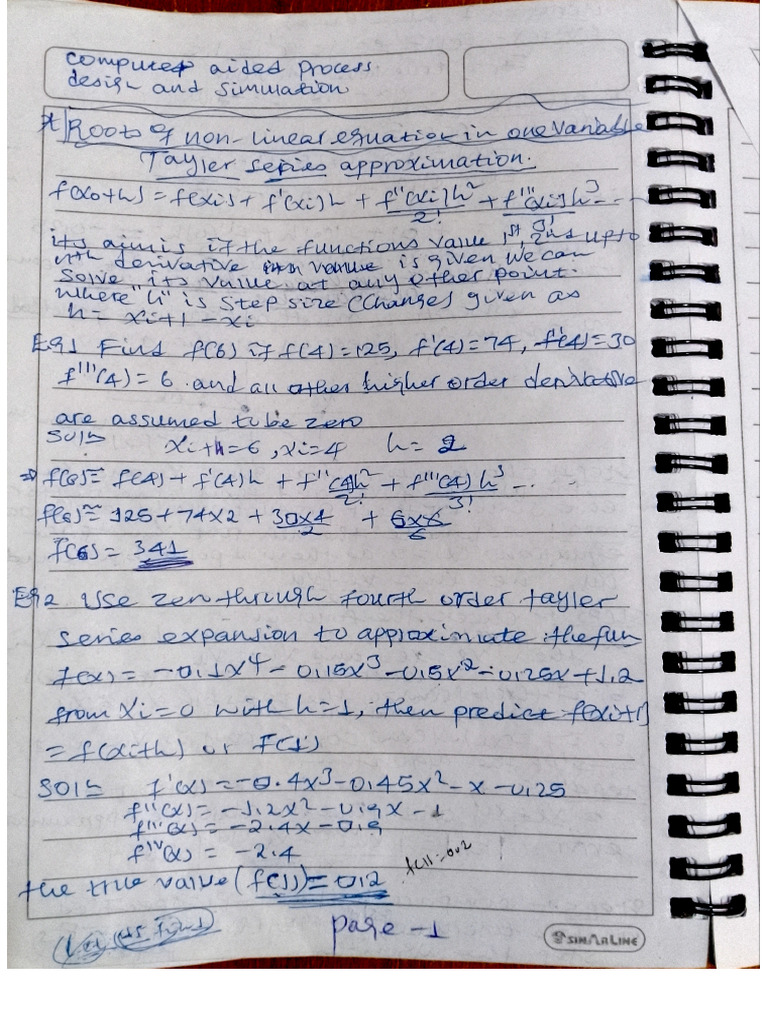 computer aided process
design and simulation
Roots of non-linear equation in one variable
Tayler series approximation.
f(x0+h) = f(xi) + f'(xi)h + f''(xi)h²/2! + f'''(xi)h³/3! ---
its aim is if the functions value 1st, 2nd upto
nth derivative value is given we can
solve its value at any other point.
where "h" is step size (change) given as
h = xi+1 - xi
Eg1 Find f(6) if f(4)=125, f'(4)=74, f''(4)=30
f'''(4)=6 . and all other higher order derivative
are assumed to be zero
Soln xi+h=6, xi=4 h=2
⇒ f(6)≈ f(4) + f'(4)h + f''(4)h²/2! + f'''(4)h³/3! ---
f(6)≈ 125 + 74x2 + 30x4/2 + 6x8/6
f(6) = 341
Eg2 Use zero through fourth order tayler
series expansion to approximate the fun
f(x) = -0.1x⁴ - 0.15x³ - 0.5x² - 0.25x + 1.2
from xi=0 with h=1, then predict f(xi+1)
= f(xi+h) or f(1)
Soln f'(x) = -0.4x³ - 0.45x² - x - 0.25
f''(x) = -1.2x² - 0.9x - 1
f'''(x) = -2.4x - 0.9
fIV(x) = -2.4
f(1)=0.2
the true value (f(1)) = 0.2
page -1
SINARLINE